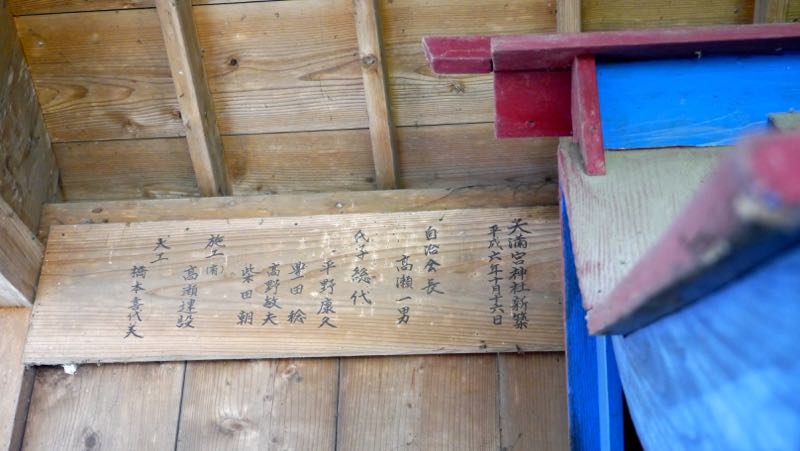 天満宮神社新築
平成六年十月十六日
自治会長
高瀬一男
氏子総代
平野康久
豊田稔
高野敏夫
柴田朝
施工(有)高瀬建設
大工
橋本喜代美